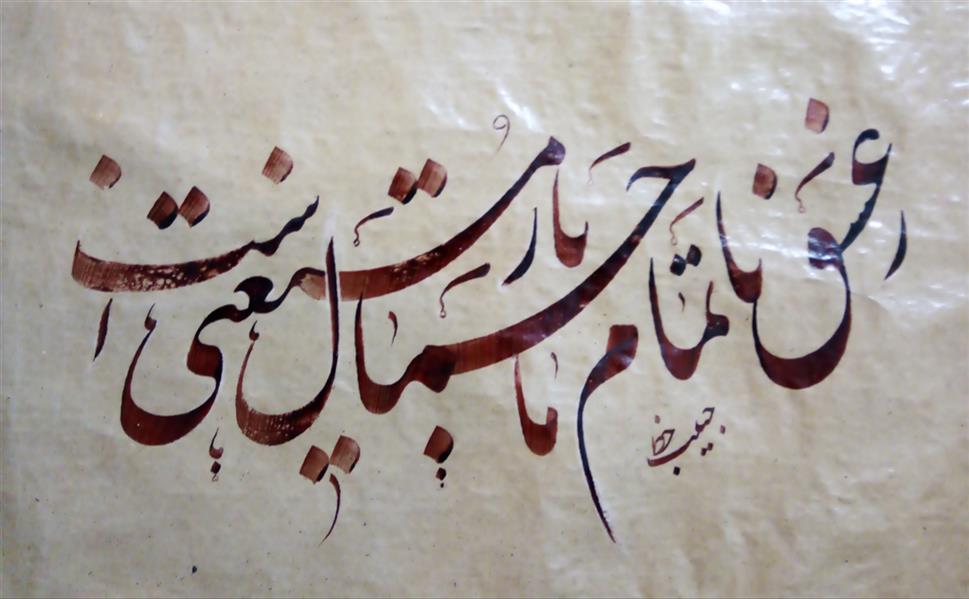 ز عشق ناتمام ما جمال یار مستغنی است
حبیب